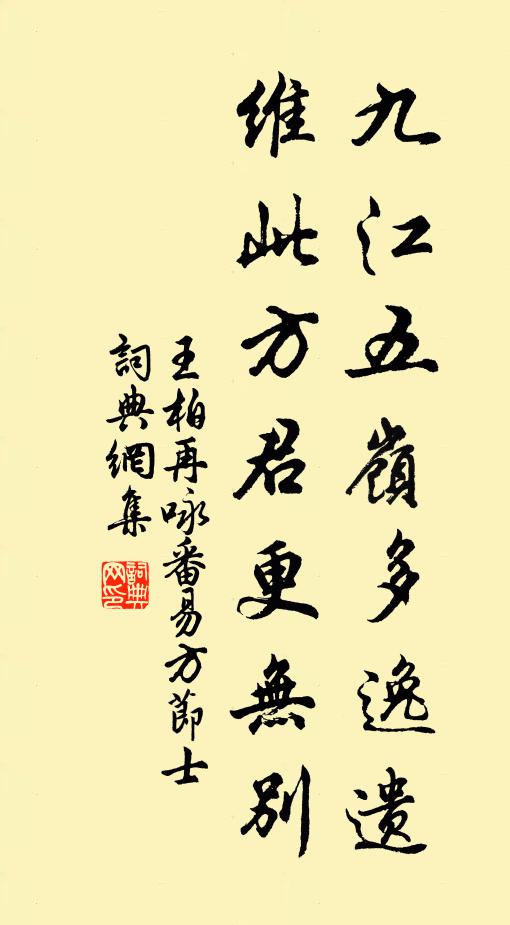 九江五嶺多逸遺
維此方君更無別
王柏再咏番易方節士
詞典網集
詞典网印